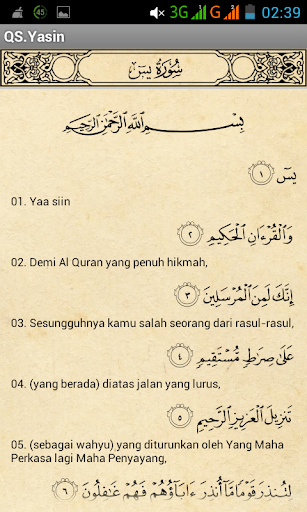 45 3G G 02:39
QS.Yasin
سُورَةُ يسٓ
بِسْمِ ٱللَّهِ ٱلرَّحْمَٰنِ ٱلرَّحِيمِ
يسٓ ١
01. Yaa siin
وَٱلْقُرْءَانِ ٱلْحَكِيمِ ٢
02. Demi Al Quran yang penuh hikmah,
إِنَّكَ لَمِنَ ٱلْمُرْسَلِينَ ٣
03. Sesungguhnya kamu salah seorang dari rasul-rasul,
عَلَىٰ صِرَٰطٍ مُّسْتَقِيمٍ ٤
04. (yang berada) diatas jalan yang lurus,
تَنزِيلَ ٱلْعَزِيزِ ٱلرَّحِيمِ ٥
05. (sebagai wahyu) yang diturunkan oleh Yang Maha
Perkasa lagi Maha Penyayang,
لِتُنذِرَ قَوْمًا مَّآ أُنذِرَ ءَابَآؤُهُمْ فَهُمْ غَٰفِلُونَ ٦